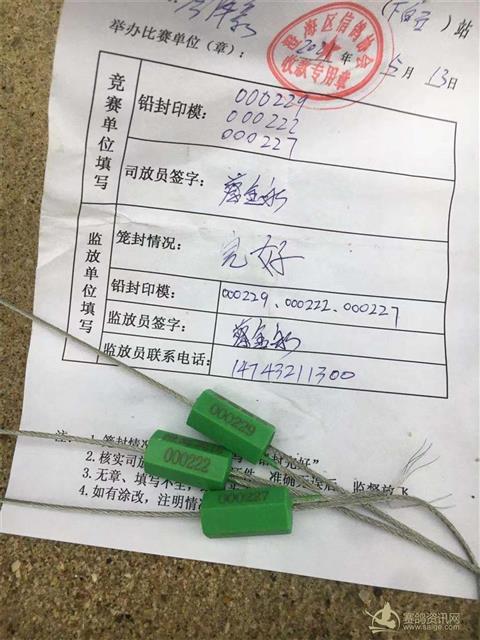 (下白豆)站
举办比赛单位(章): 2021年5月13日
海区信鸽协会
收款专用章
竞赛单位填写
铅封印模:
000229
000222
000227
司放员签字:
监放单位填写
笼封情况: 完好
铅封印模: 000229、000222、000227
监放员签字:
监放员联系电话: 14743211300
000229
000222
000227
注: 1.笼封情况 封完好”
2.核实司放 准确无误后, 监督放飞
3.无章、填写不全,
4.如有涂改,注明情况
赛鸽资讯网
www.saige.com